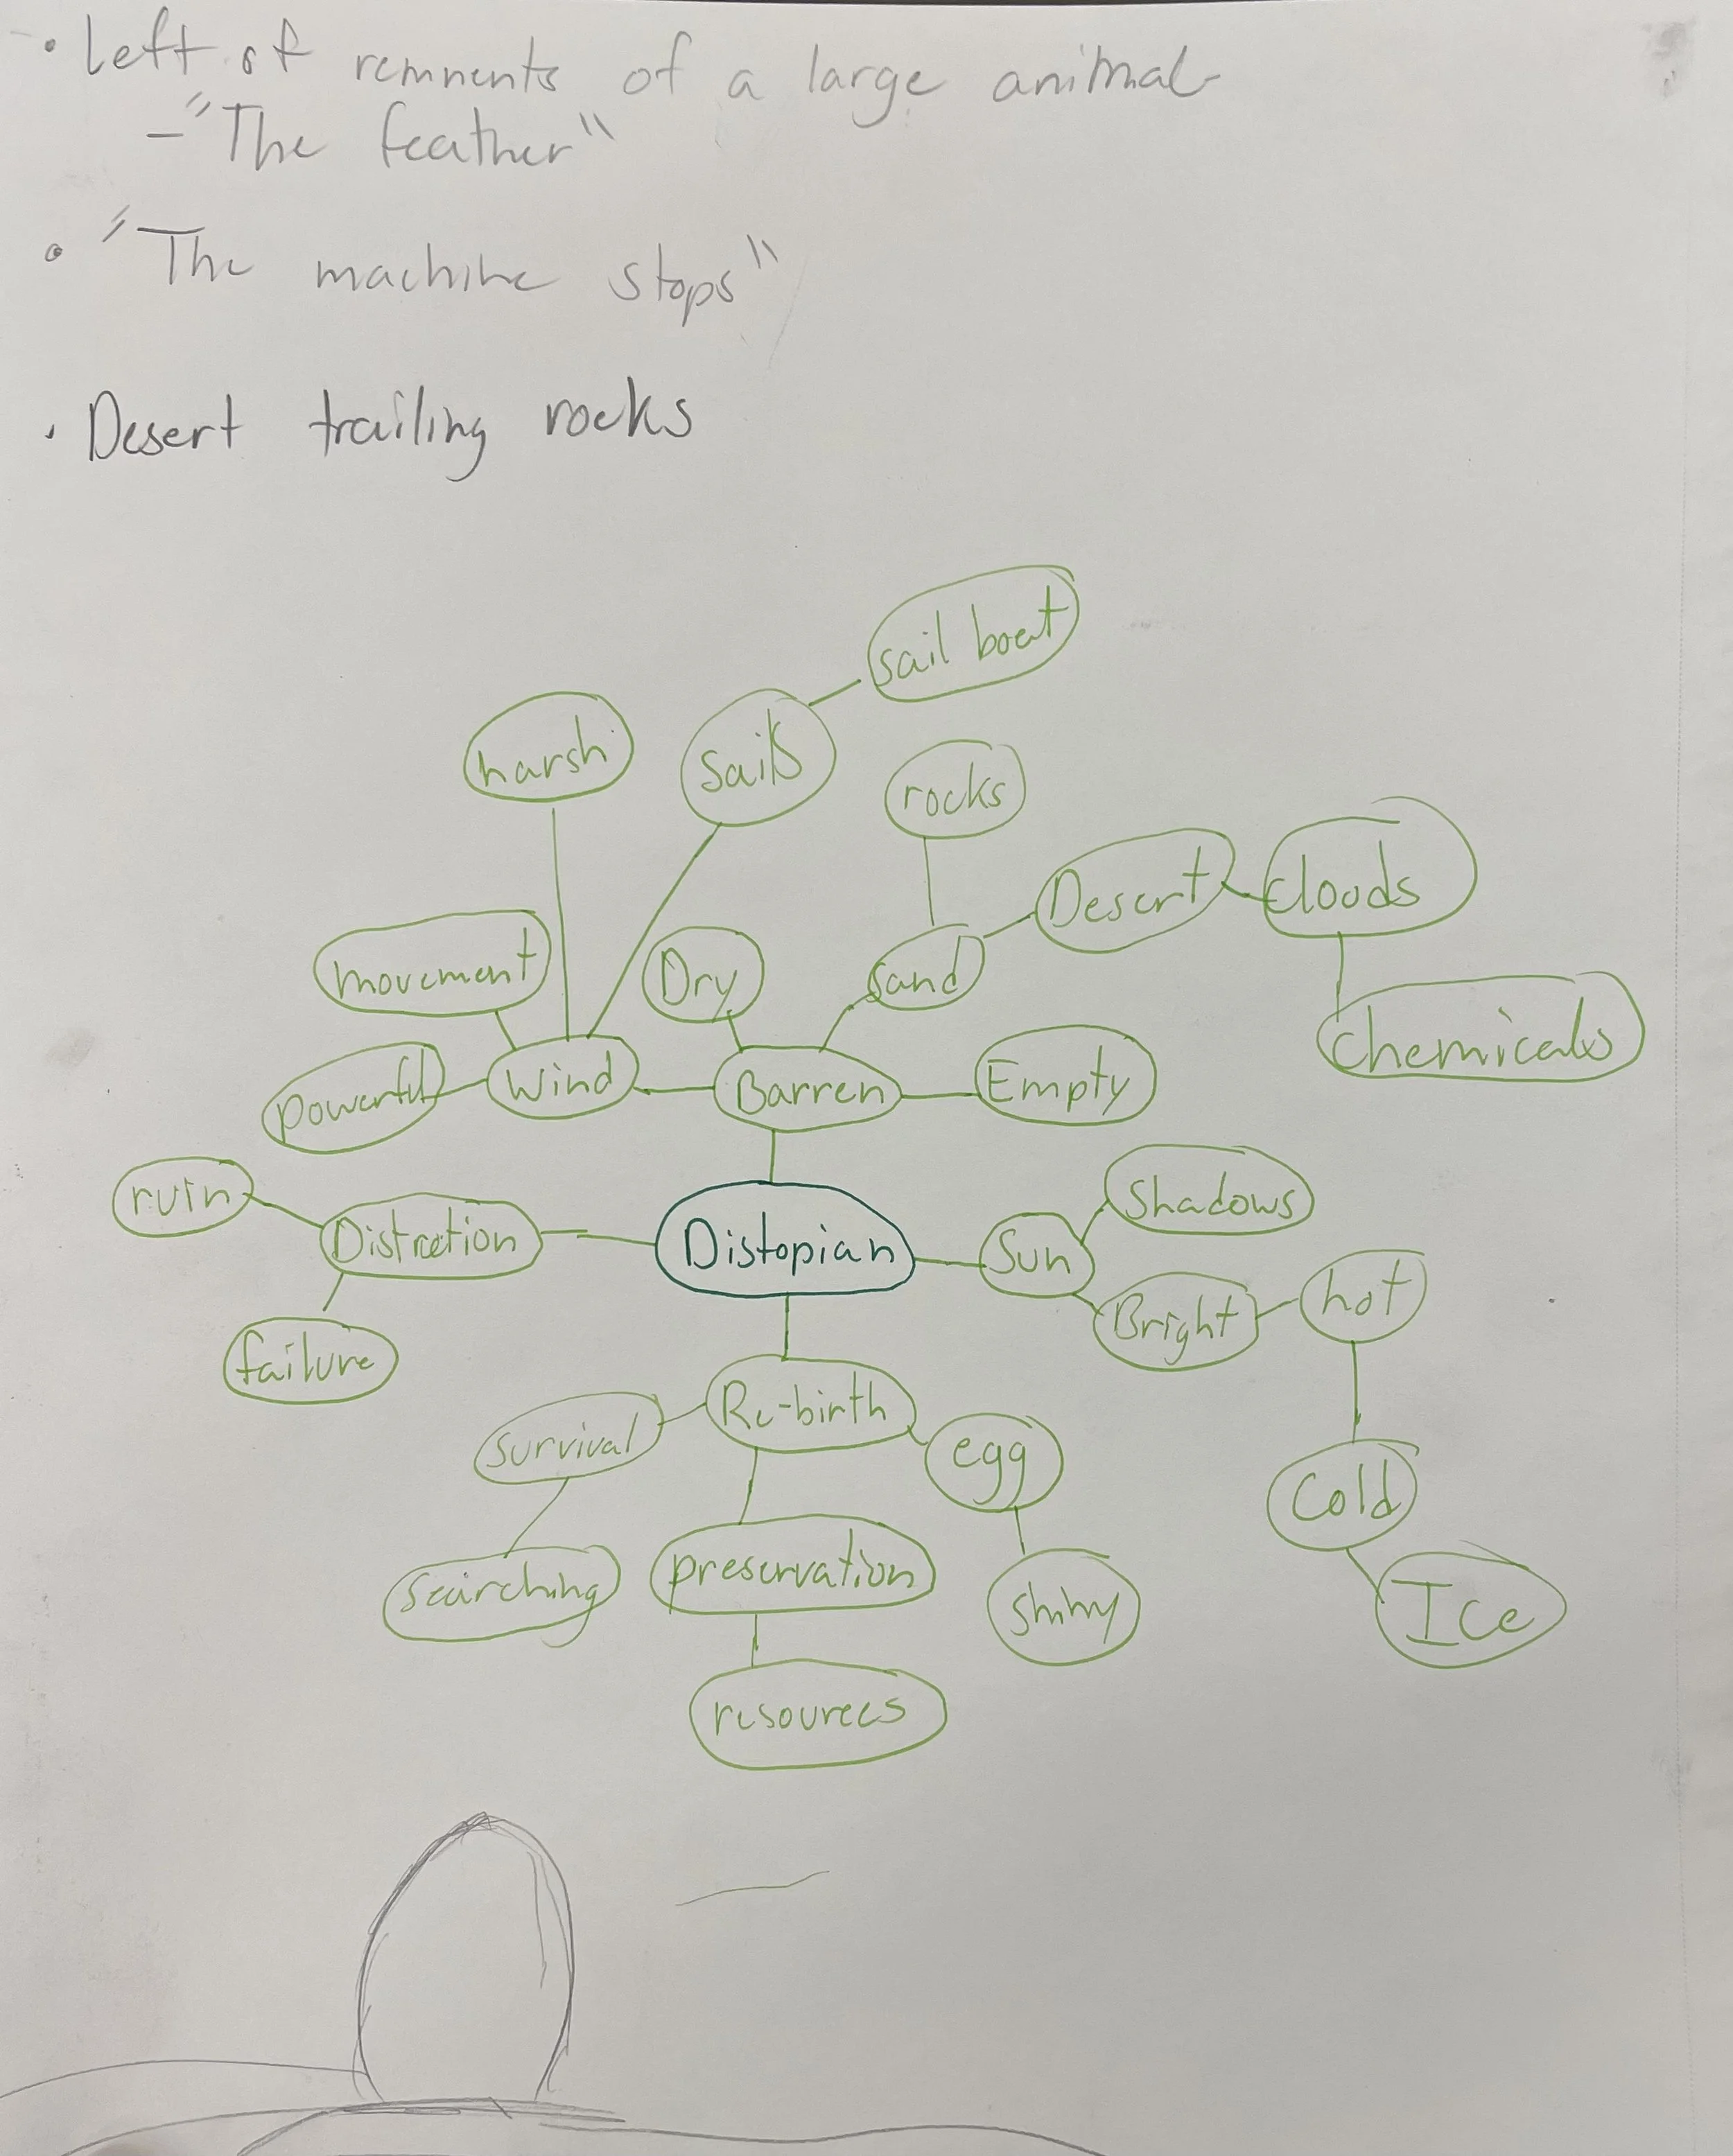 • Left of remnents of a large animal
- "The feather"
• "The machine stops"
• Desert trailing rocks
sail boat
harsh
sails
rocks
Desert
clouds
movement
Dry
sand
chemicals
powerful
Wind
Barren
Empty
ruin
Distrction
Distopian
Sun
Shadows
Bright
hot
failure
Re-birth
survival
egg
Cold
searching
preservation
shiny
Ice
resources